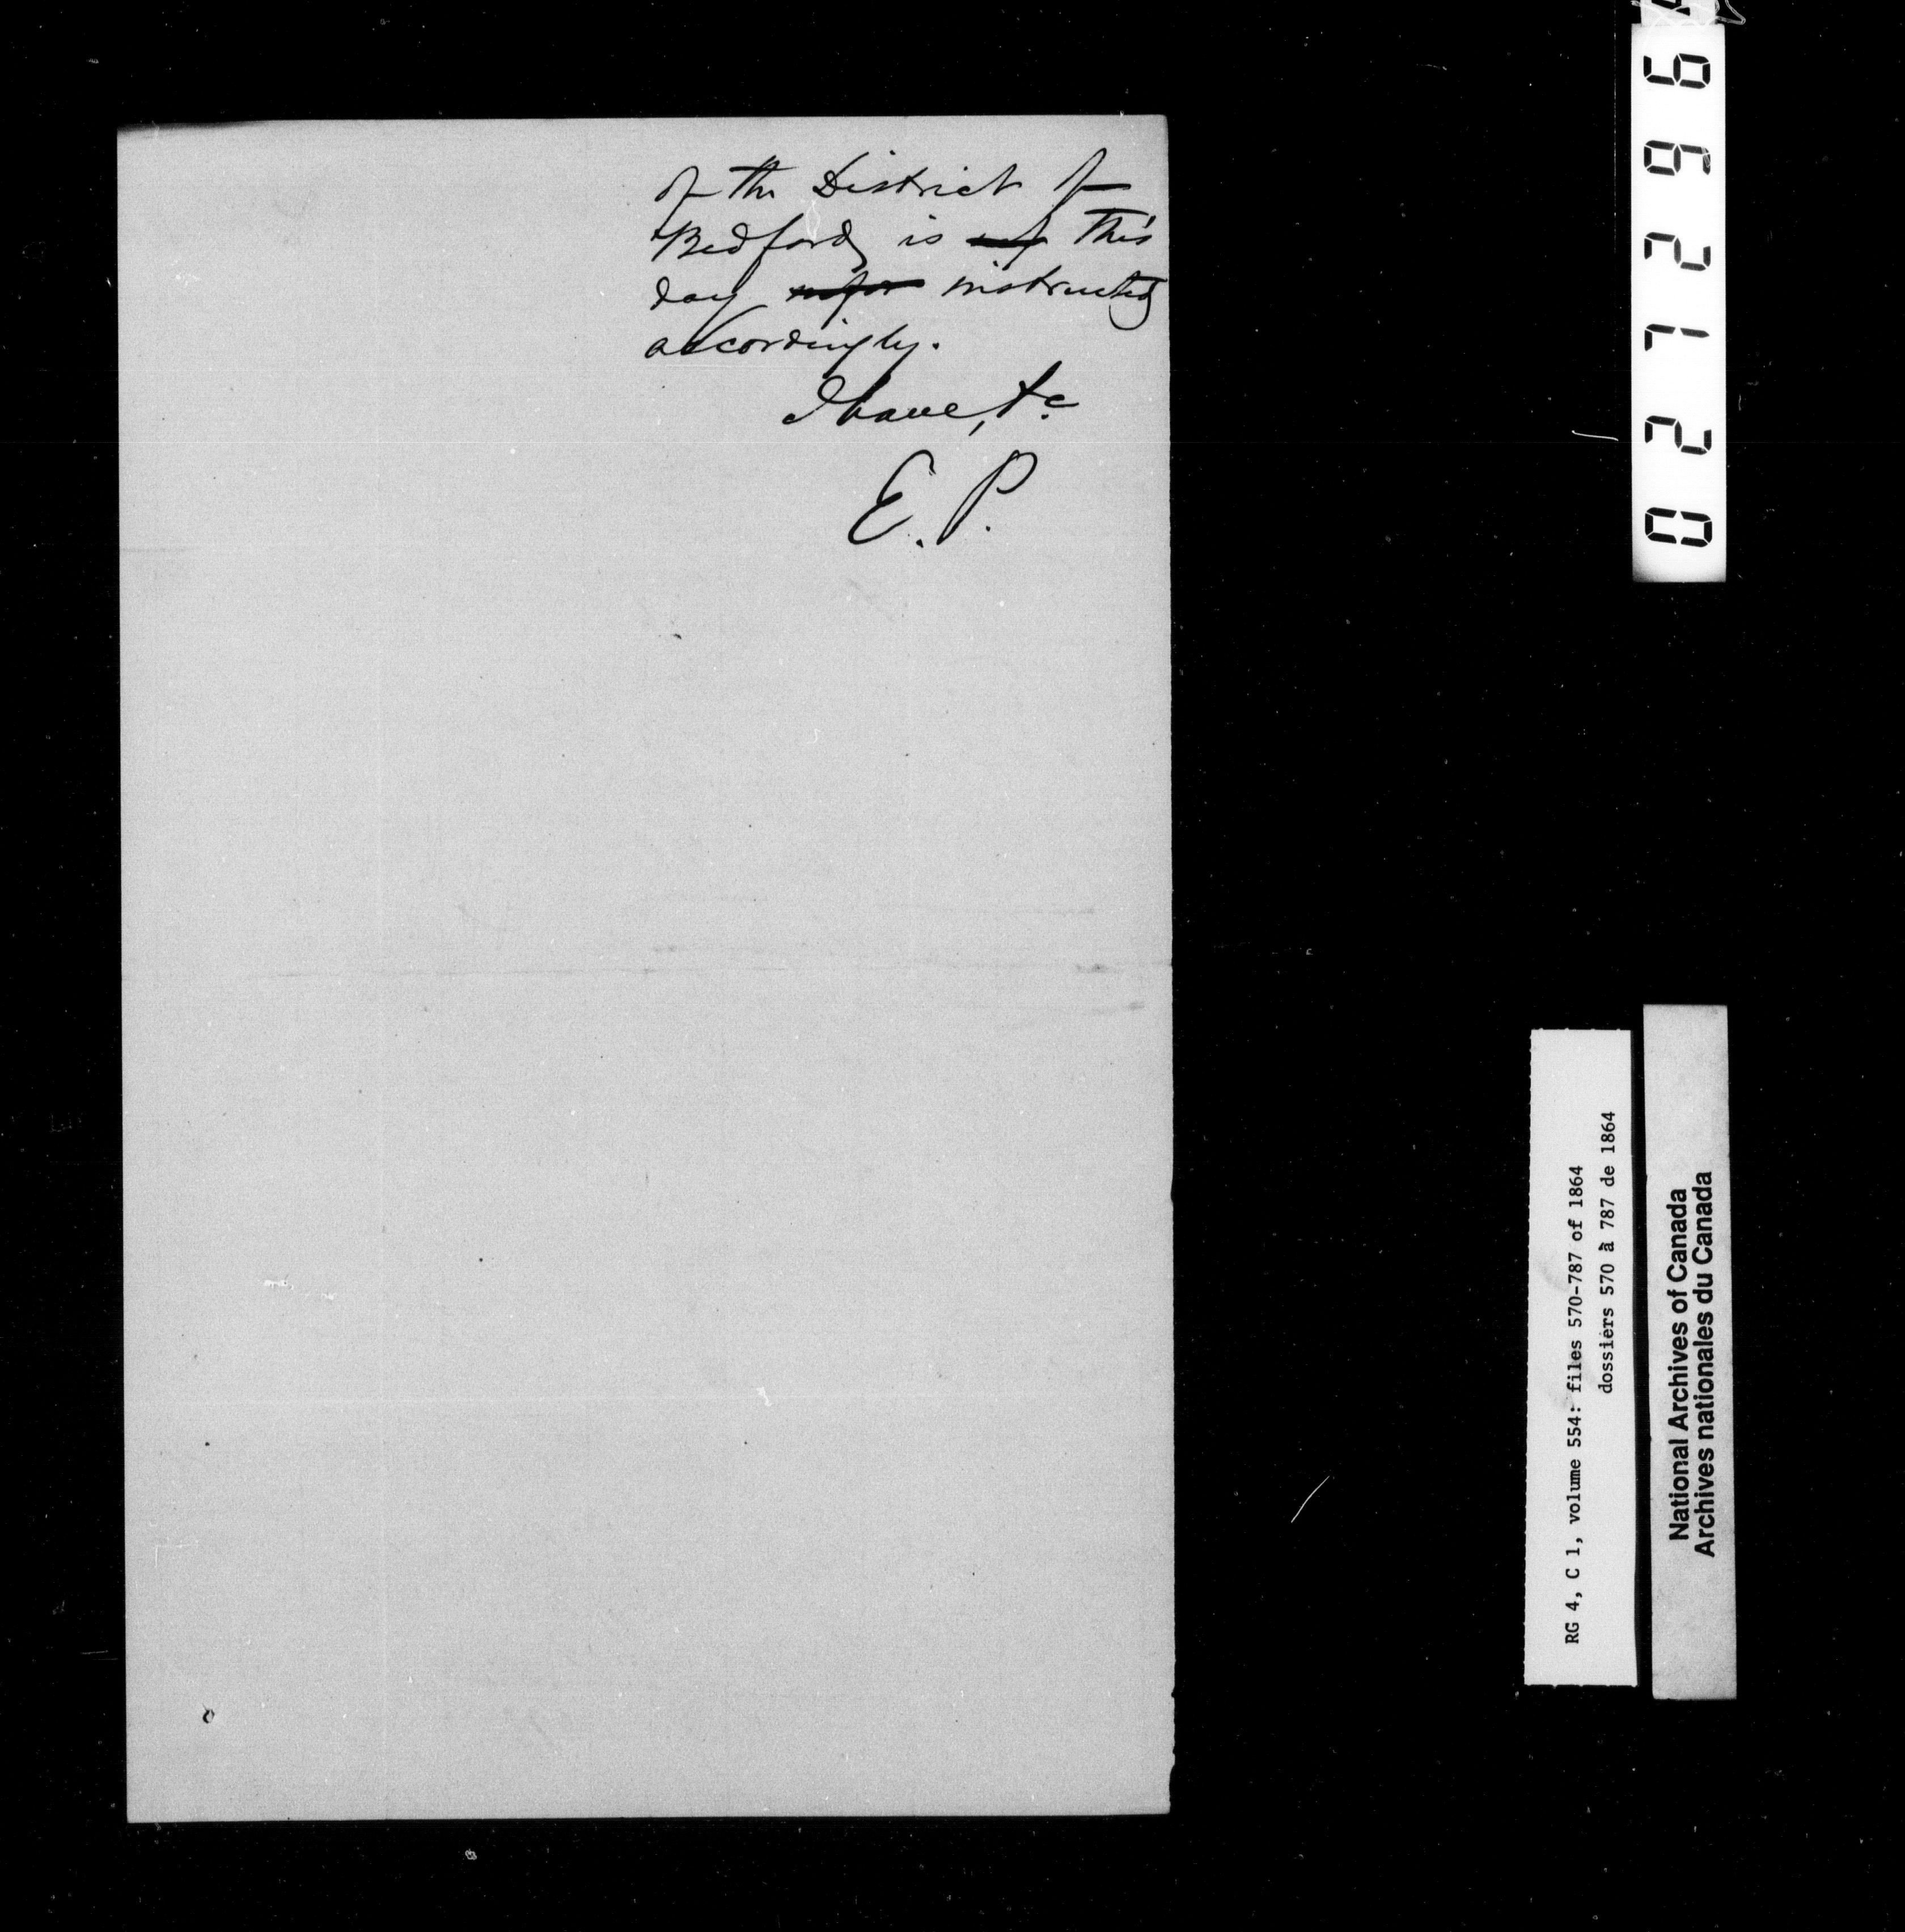 of the District of
Bedford is inf this
day infor instructed
accordingly.
I have, &c
E. P.
027296
RG 4, C 1, volume 554: files 570-787 of 1864
dossiers 570 à 787 de 1864
National Archives of Canada
Archives nationales du Canada